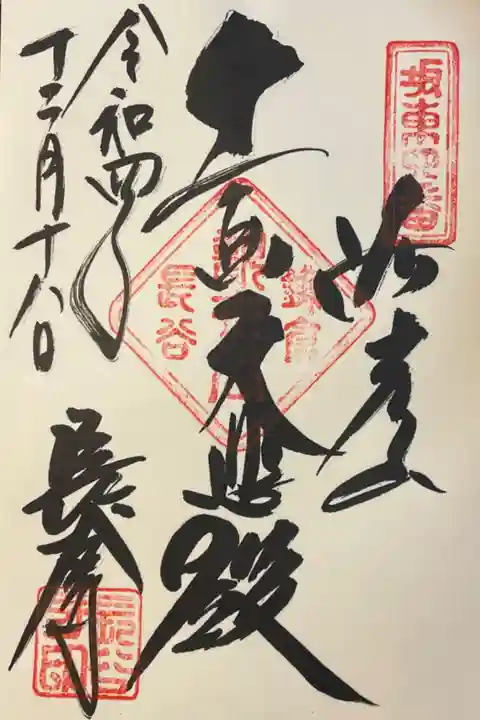 坂東第四番
奉拝
十一面大悲殿
鎌倉
長谷
令和四年
十二月十八日
長谷寺